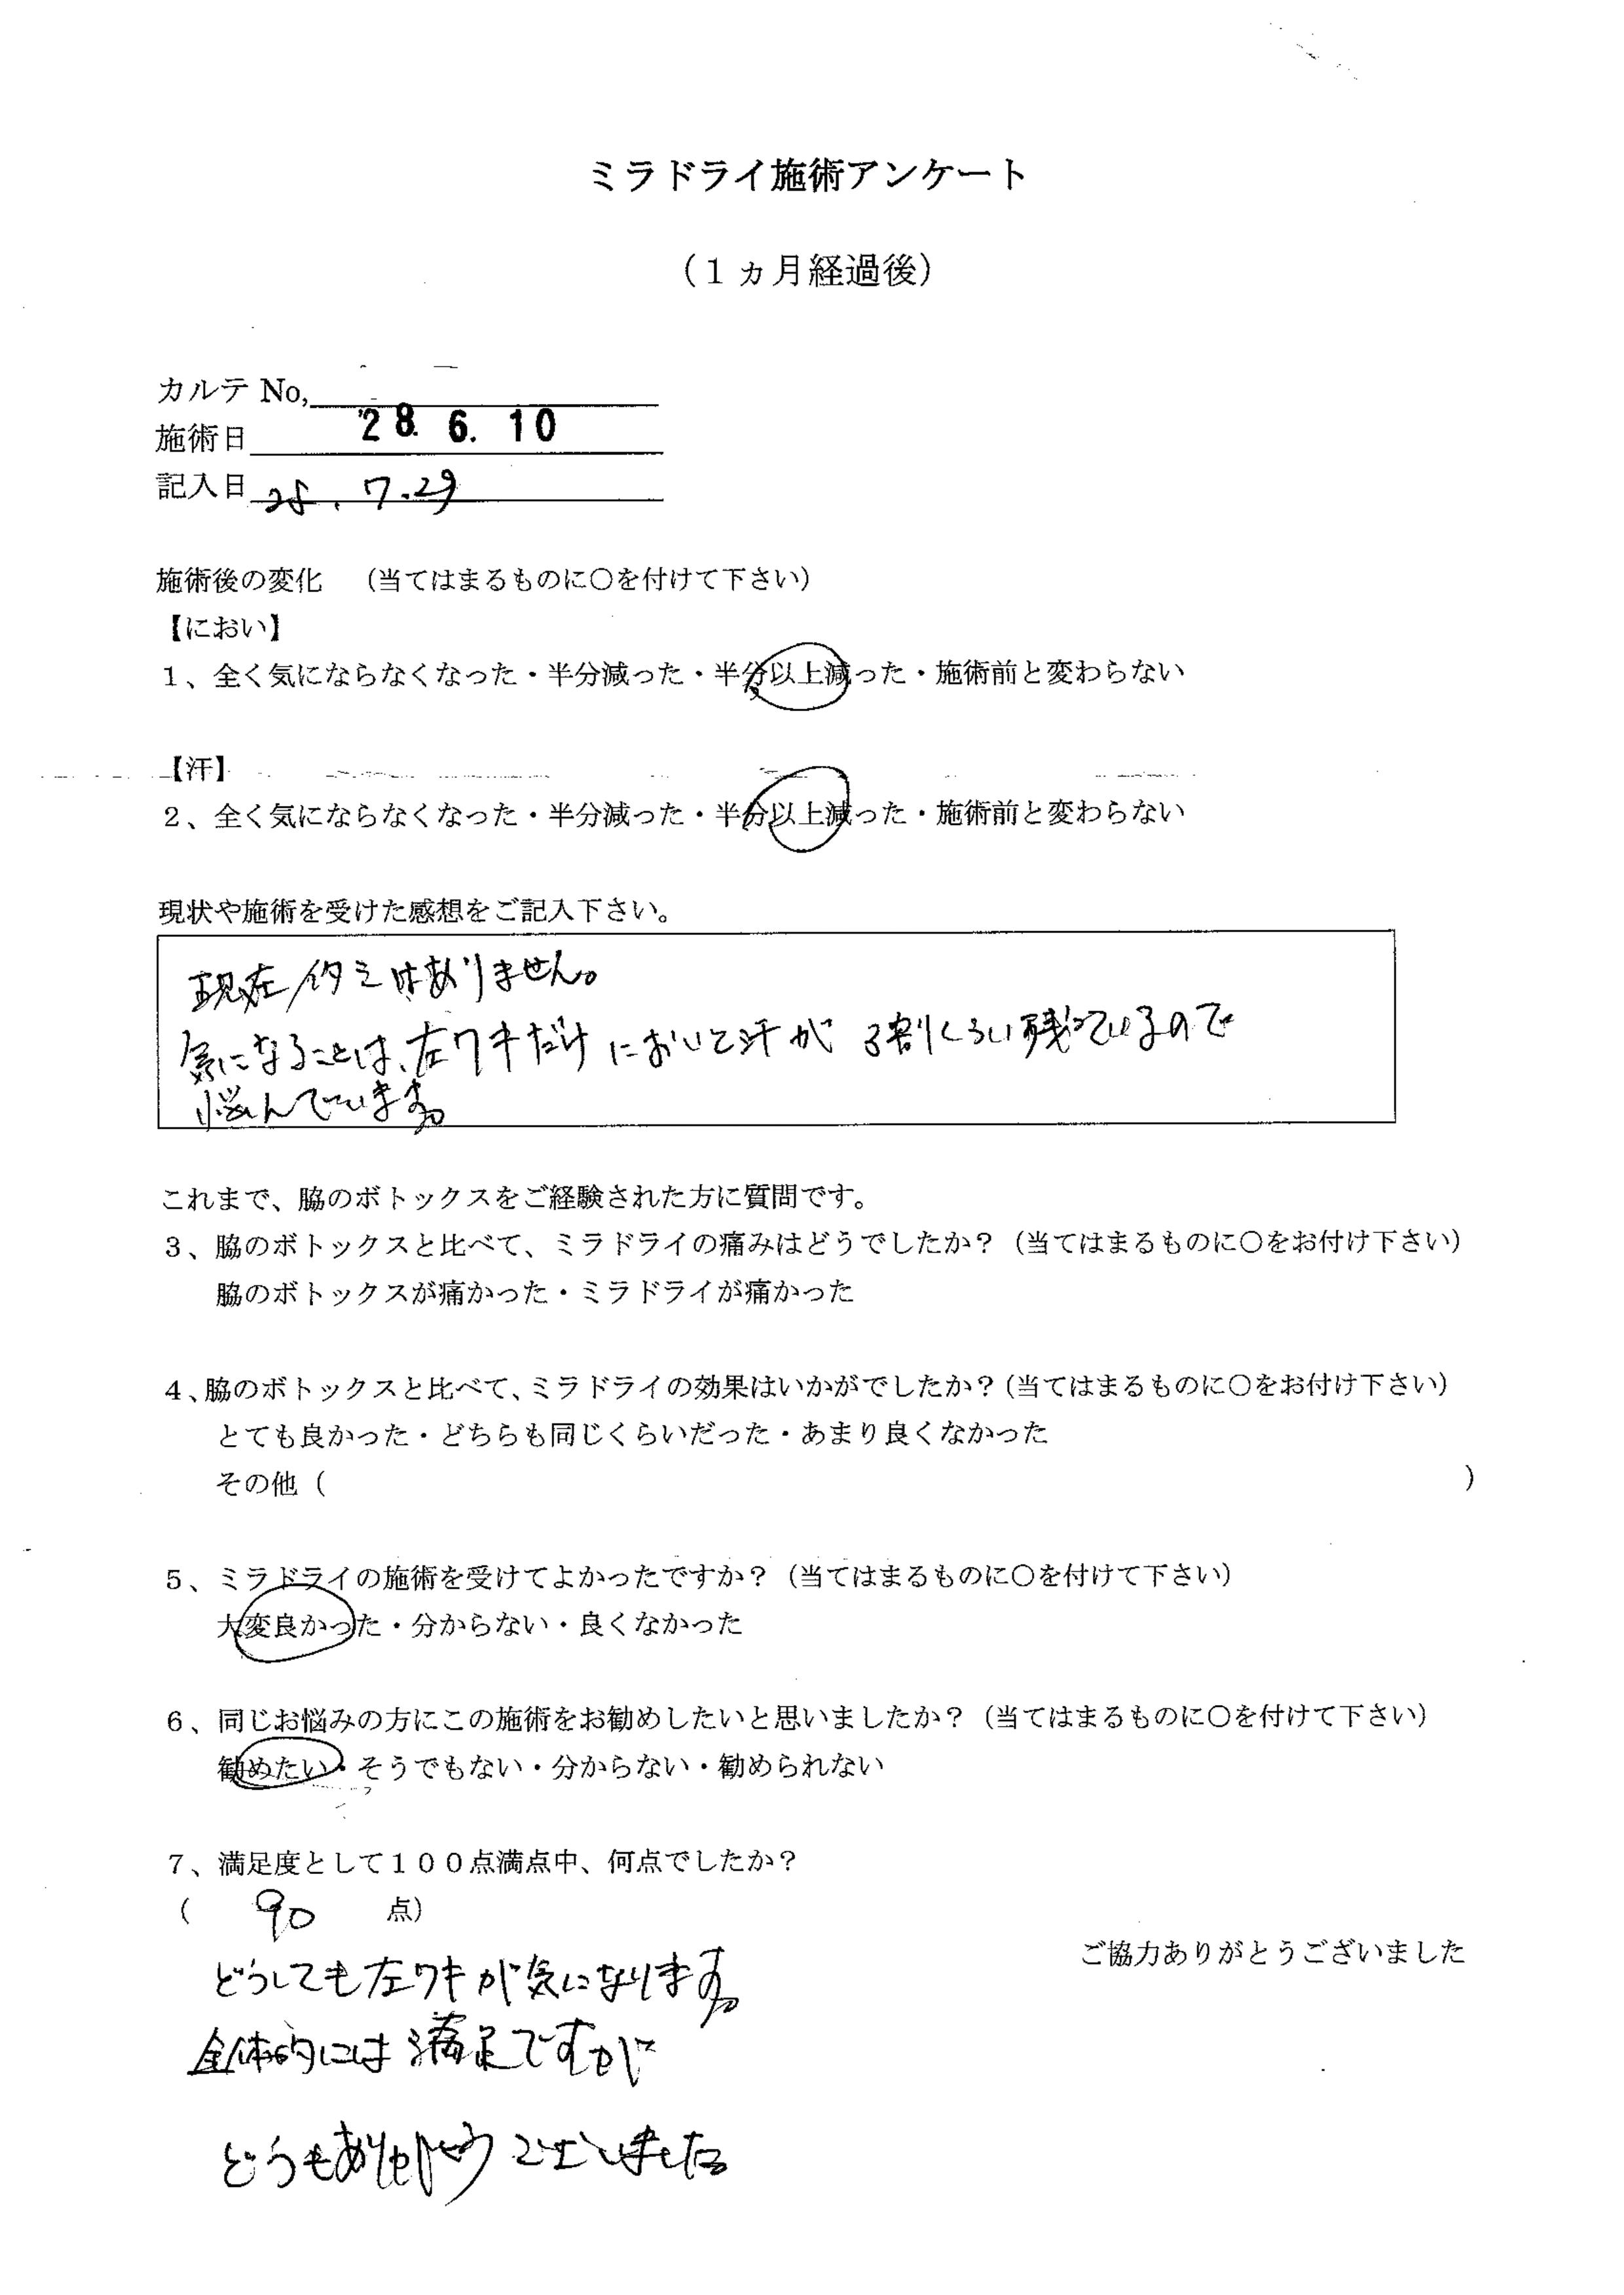 ミラドライ施術アンケート
（１ヵ月経過後）
カルテ No,
施術日 '28. 6. 10
記入日 28. 7.29
施術後の変化　（当てはまるものに〇を付けて下さい）
【におい】
１、全く気にならなくなった・半分減った・半分以上減った・施術前と変わらない
【汗】
２、全く気にならなくなった・半分減った・半分以上減った・施術前と変わらない
現状や施術を受けた感想をご記入下さい。
現在イタミはありません。
気になることは、左ワキだけ においと汗が 3割くらい残っているので
悩んでいます。
これまで、脇のボトックスをご経験された方に質問です。
３、脇のボトックスと比べて、ミラドライの痛みはどうでしたか？（当てはまるものに〇をお付け下さい）
脇のボトックスが痛かった・ミラドライが痛かった
４、脇のボトックスと比べて、ミラドライの効果はいかがでしたか？（当てはまるものに〇をお付け下さい）
とても良かった・どちらも同じくらいだった・あまり良くなかった
その他（　　　　　　　　　　）
５、ミラドライの施術を受けてよかったですか？（当てはまるものに〇を付けて下さい）
大変良かった・分からない・良くなかった
６、同じお悩みの方にこの施術をお勧めしたいと思いましたか？（当てはまるものに〇を付けて下さい）
勧めたい・そうでもない・分からない・勧められない
７、満足度として１００点満点中、何点でしたか？
（　90　点）
ご協力ありがとうございました
どうしても左ワキが気になります。
全体的には満足ですが
どうもありがとうございました